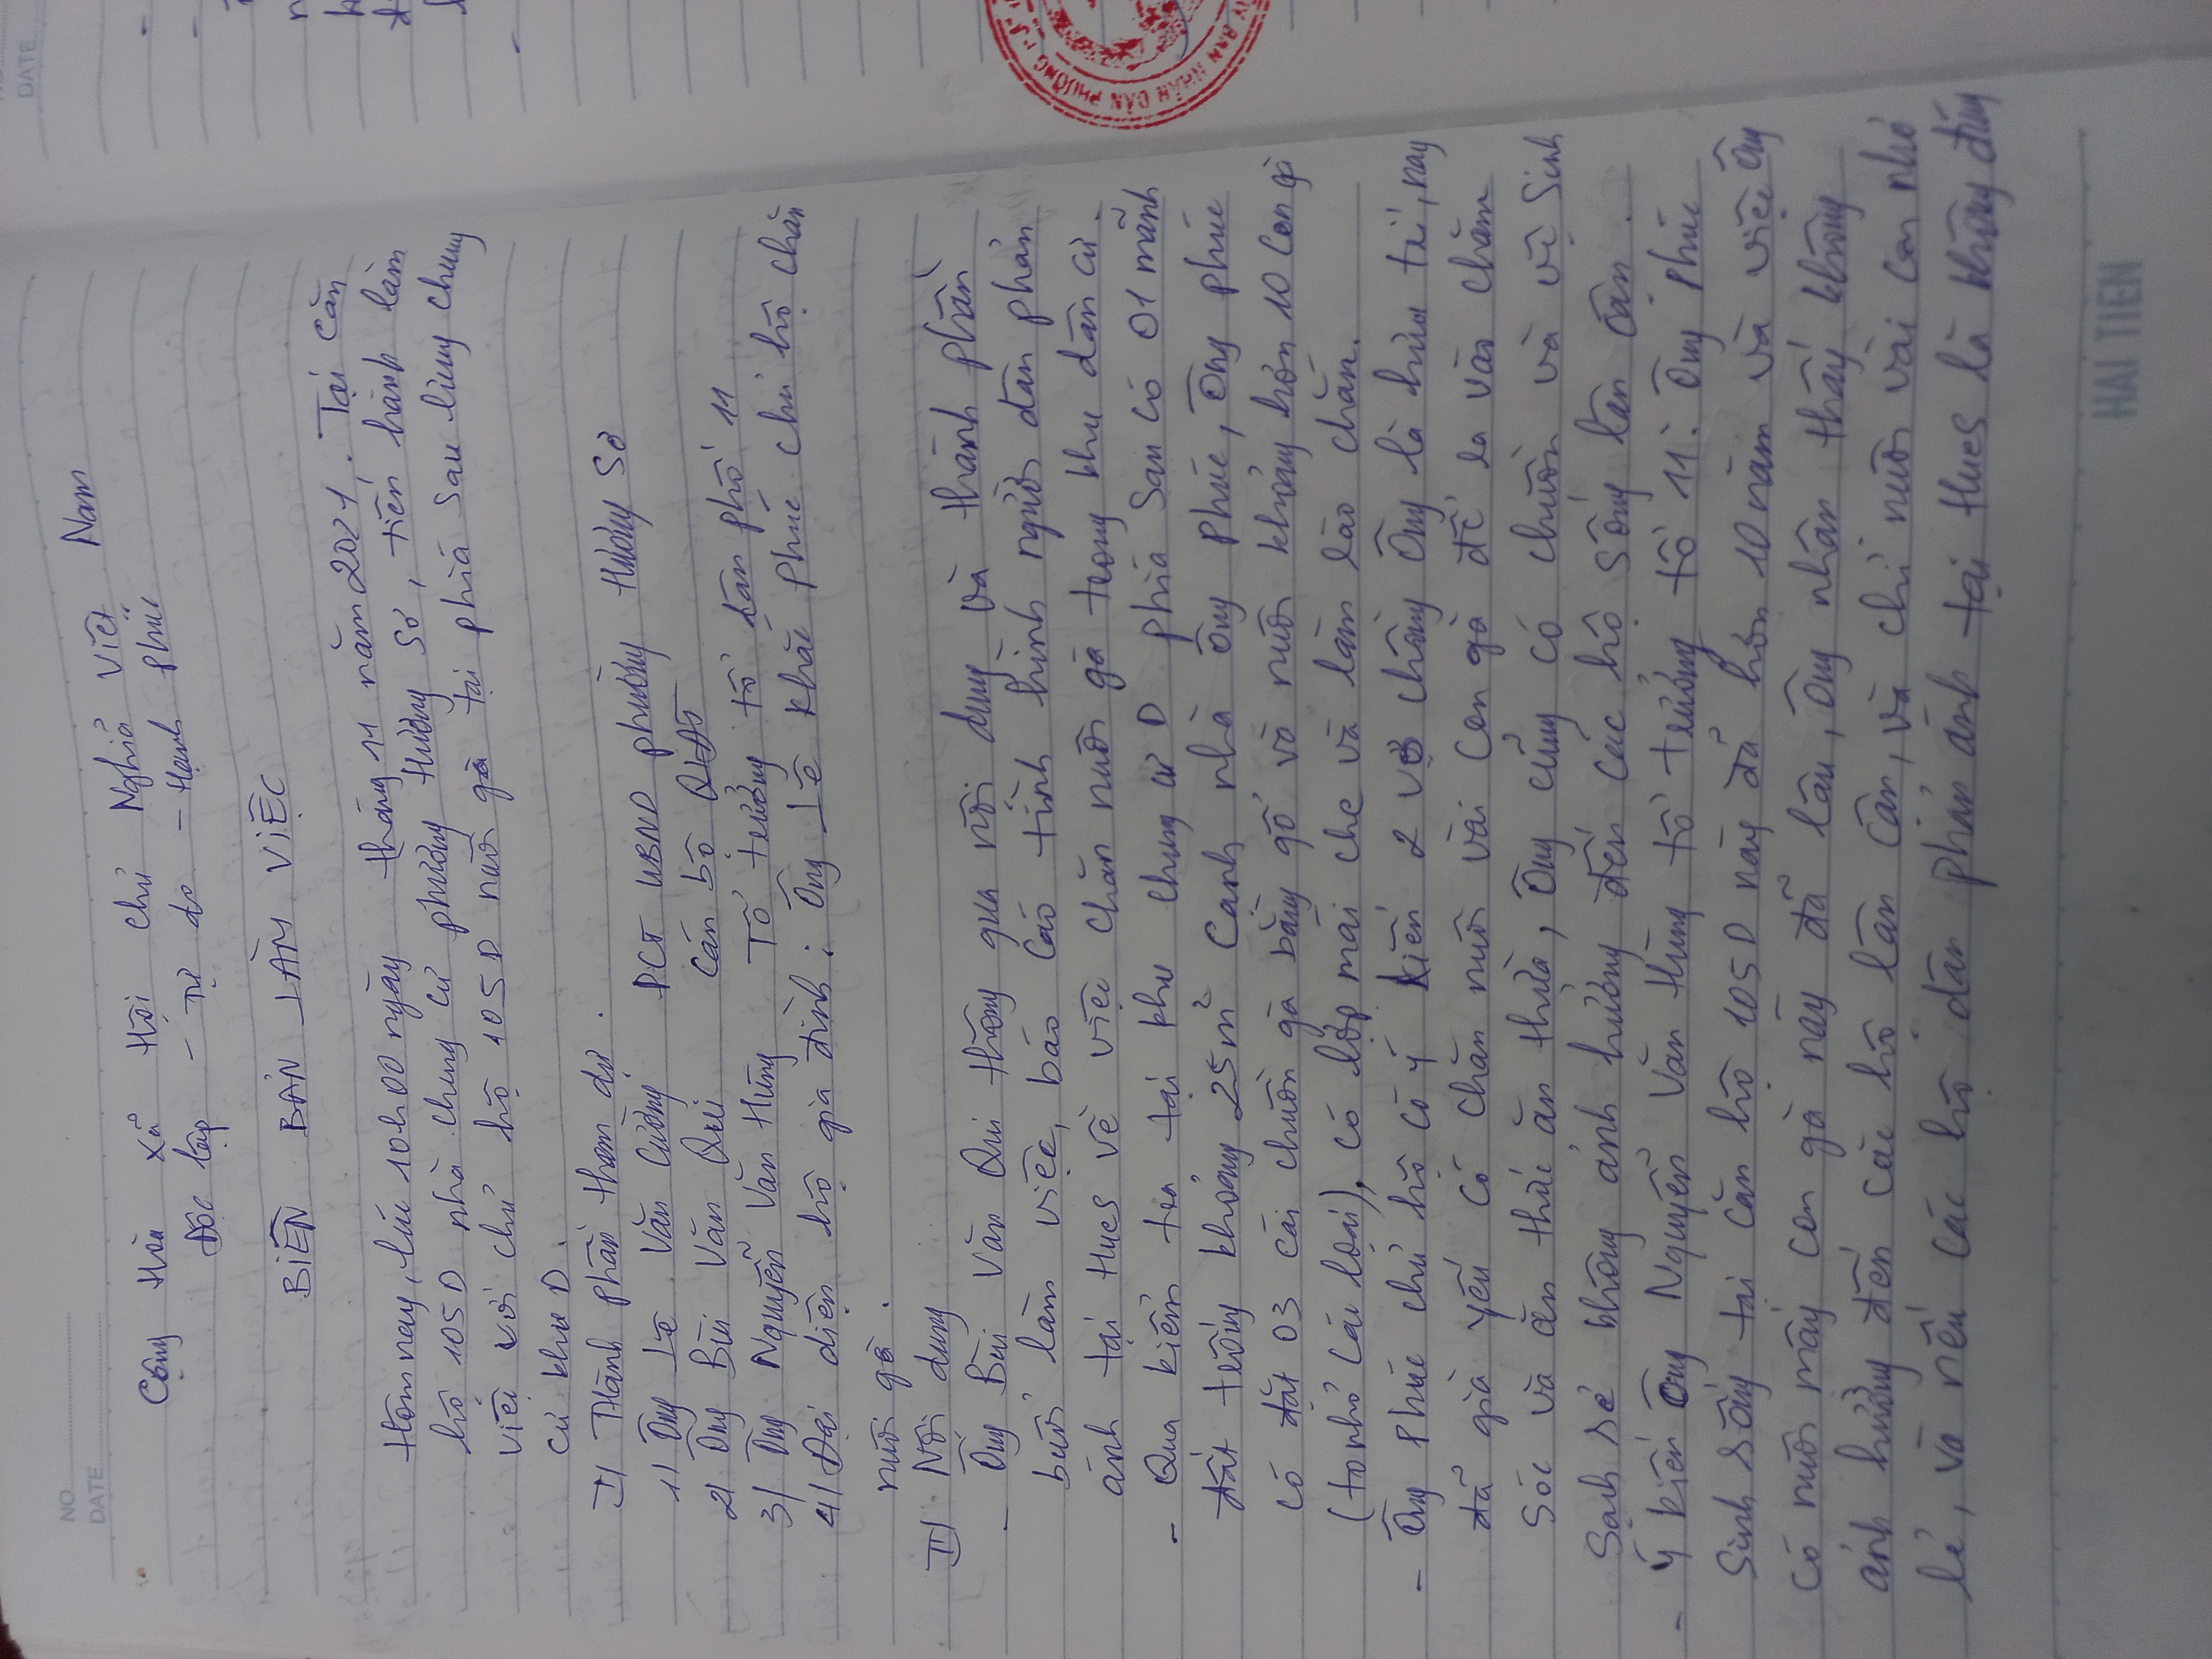 NO.
DATE
Cộng Hòa Xã Hội Chủ Nghĩa Việt Nam
Độc lập - Tự do - Hạnh phúc
BIÊN BẢN LÀM VIỆC
Hôm nay, lúc 10h00 ngày tháng 11 năm 2021. Tại căn
hộ 105D nhà chung cư phường Hương Sơ, tiến hành làm
việc với chủ hộ 105D nuôi gà tại phía sau lưng chung
cư khu D.
I/ Thành phần tham dự.
1/ Ông Lê Văn Cường PCT UBND phường Hương Sơ
2/ Ông Bùi Văn Qui Cán bộ QLĐT
3/ Ông Nguyễn Văn Hùng Tổ trưởng tổ dân phố 11
4/ Đại diện hộ gia đình: Ông Lê Khắc Phúc chủ hộ chăn
nuôi gà.
II/ Nội dung
- Ông Bùi Văn Qui thông qua nội dung và thành phần
buổi làm việc, báo cáo tình hình người dân phản
ánh tại Hues về việc chăn nuôi gà trong khu dân cư.
- Qua kiểm tra tại khu chung cư D phía sau có 01 mãnh
đất trống khoảng 25m² cạnh nhà ông Phúc, ông Phúc
có đặt 03 cái chuồn gà bằng gỗ và nuôi khoảng hơn 10 con gà
(to nhỏ các loại), có lớp mái che và làm rào chắn.
- Ông Phúc chủ hộ có ý kiến 2 vợ chồng ông là hưu trí, nay
đã già yếu có chăn nuôi vài con gà để ra vào chăm
sóc và ăn thức ăn thừa, ông cũng có chuồn và vệ sinh
sạch sẽ không ảnh hưởng đến các hộ sống lân cận.
- Ý kiến ông Nguyễn Văn Hùng tổ trưởng tổ 11. Ông Phúc
sinh sống tại căn hộ 105D này đã hơn 10 năm và việc ông
có nuôi mấy con gà này đã lâu, ông nhận thấy không
ảnh hưởng đến các hộ lân cận, và chỉ nuôi vài con nhỏ
lẻ, và nếu các hộ dân phản ánh tại Hues là không đúng
HAI TIEN
DATE
BAN NHÂN DÂN PHƯỜNG